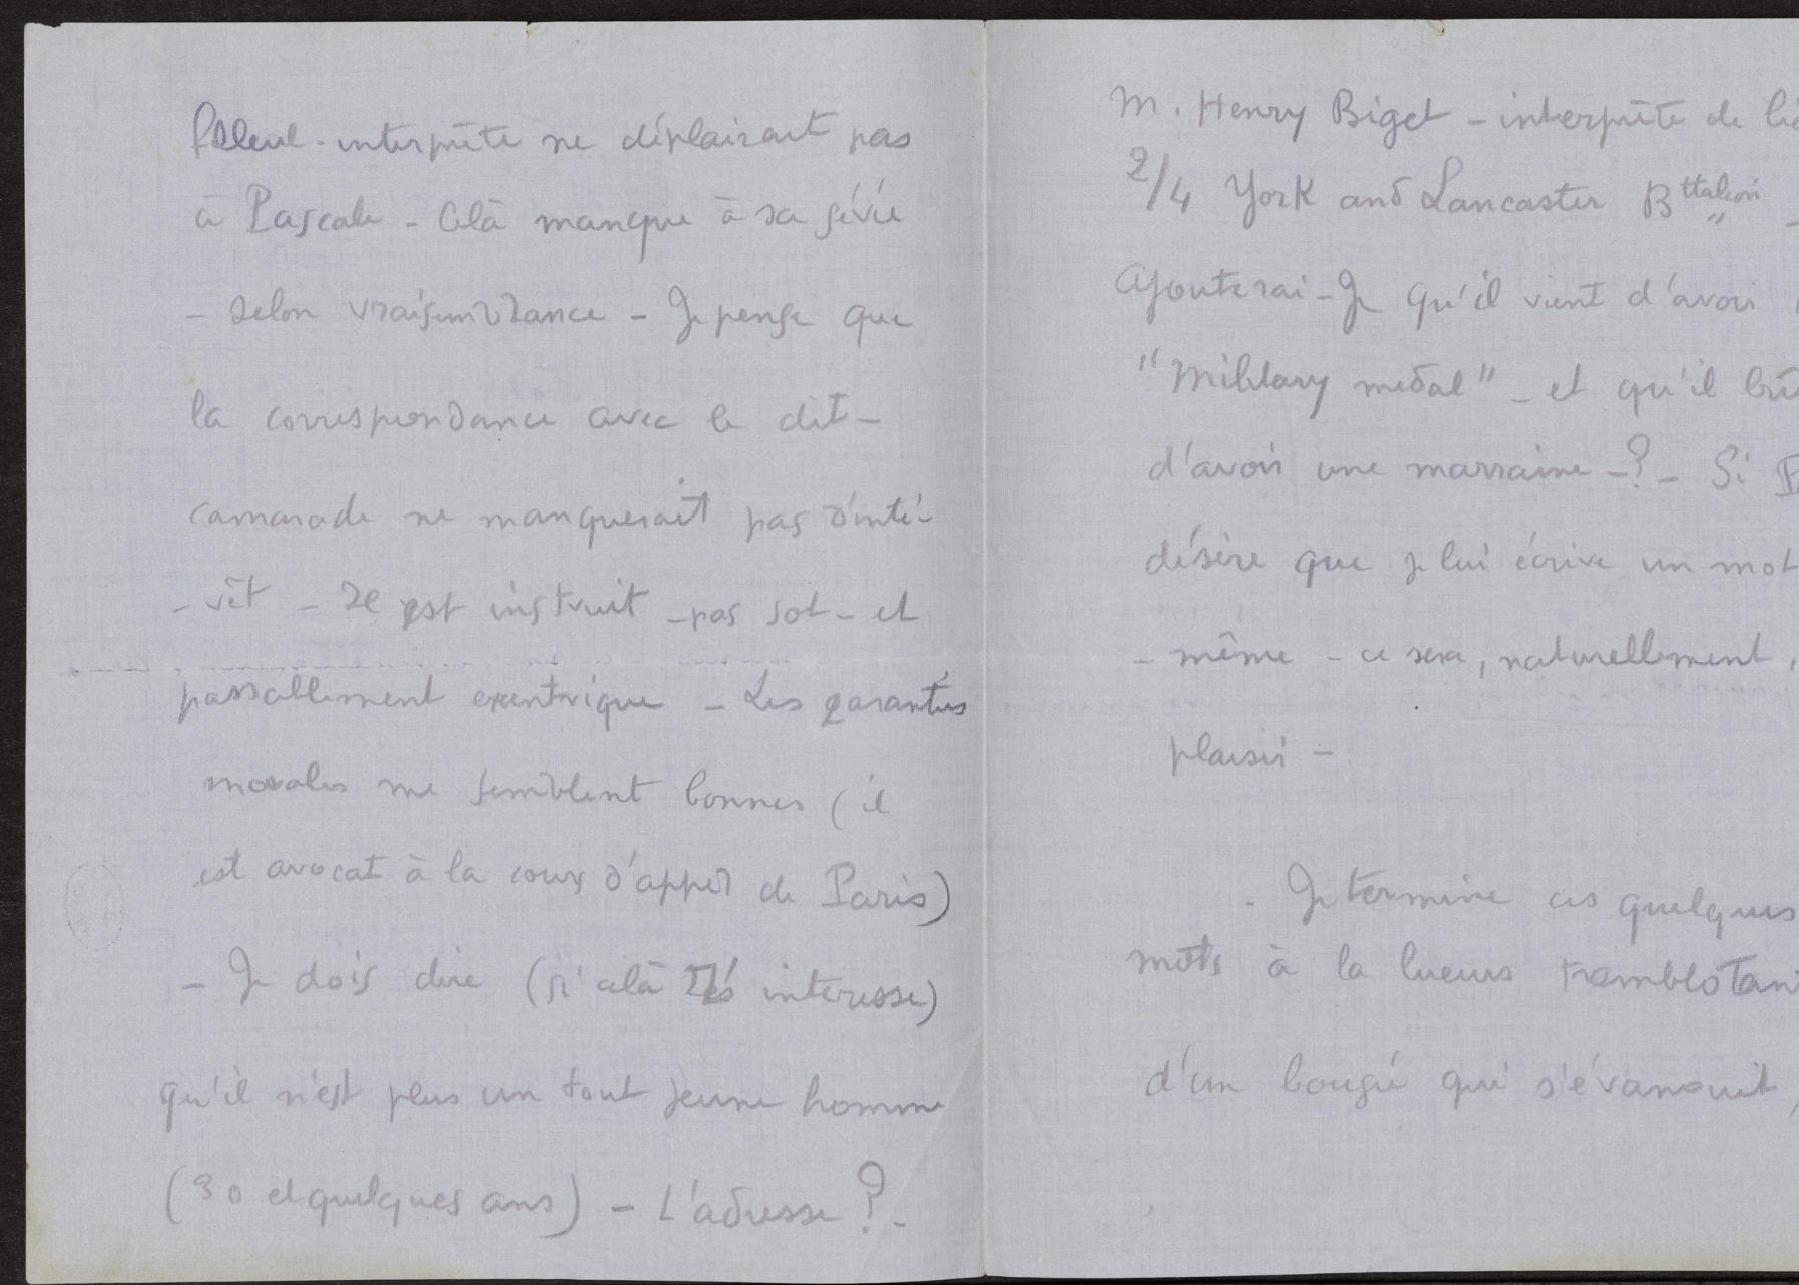 filleul-interprète ne déplairait pas
à Pascale - Celà manque à sa série
- selon vraisemblance - Je pense que
la correspondance avec le dit-
camarade ne manquerait pas d'inté-
-rêt - Il est instruit - pas sot - et
passablement exentrique - Les garanties
morales me semblent bonnes (il
est avocat à la cour d'appel de Paris)
- Je dois dire (si celà interesse)
qu'il n'est plus un tout jeune homme
(30 et quelques ans) - L'adresse ? -
M. Henry Biget - interprète de
2/4 York and Lancaster Bttalion -
Ajouterai-Je qu'il vient d'avoir
"Military medal" - et qu'il
d'avoir une marraine - ? - Si
désire que je lui écrive un mot
- même - ce sera, naturellement,
plaisir -
- Je termine ces quelques
mots à la lueur
d'un bougie qui s'évanouit,